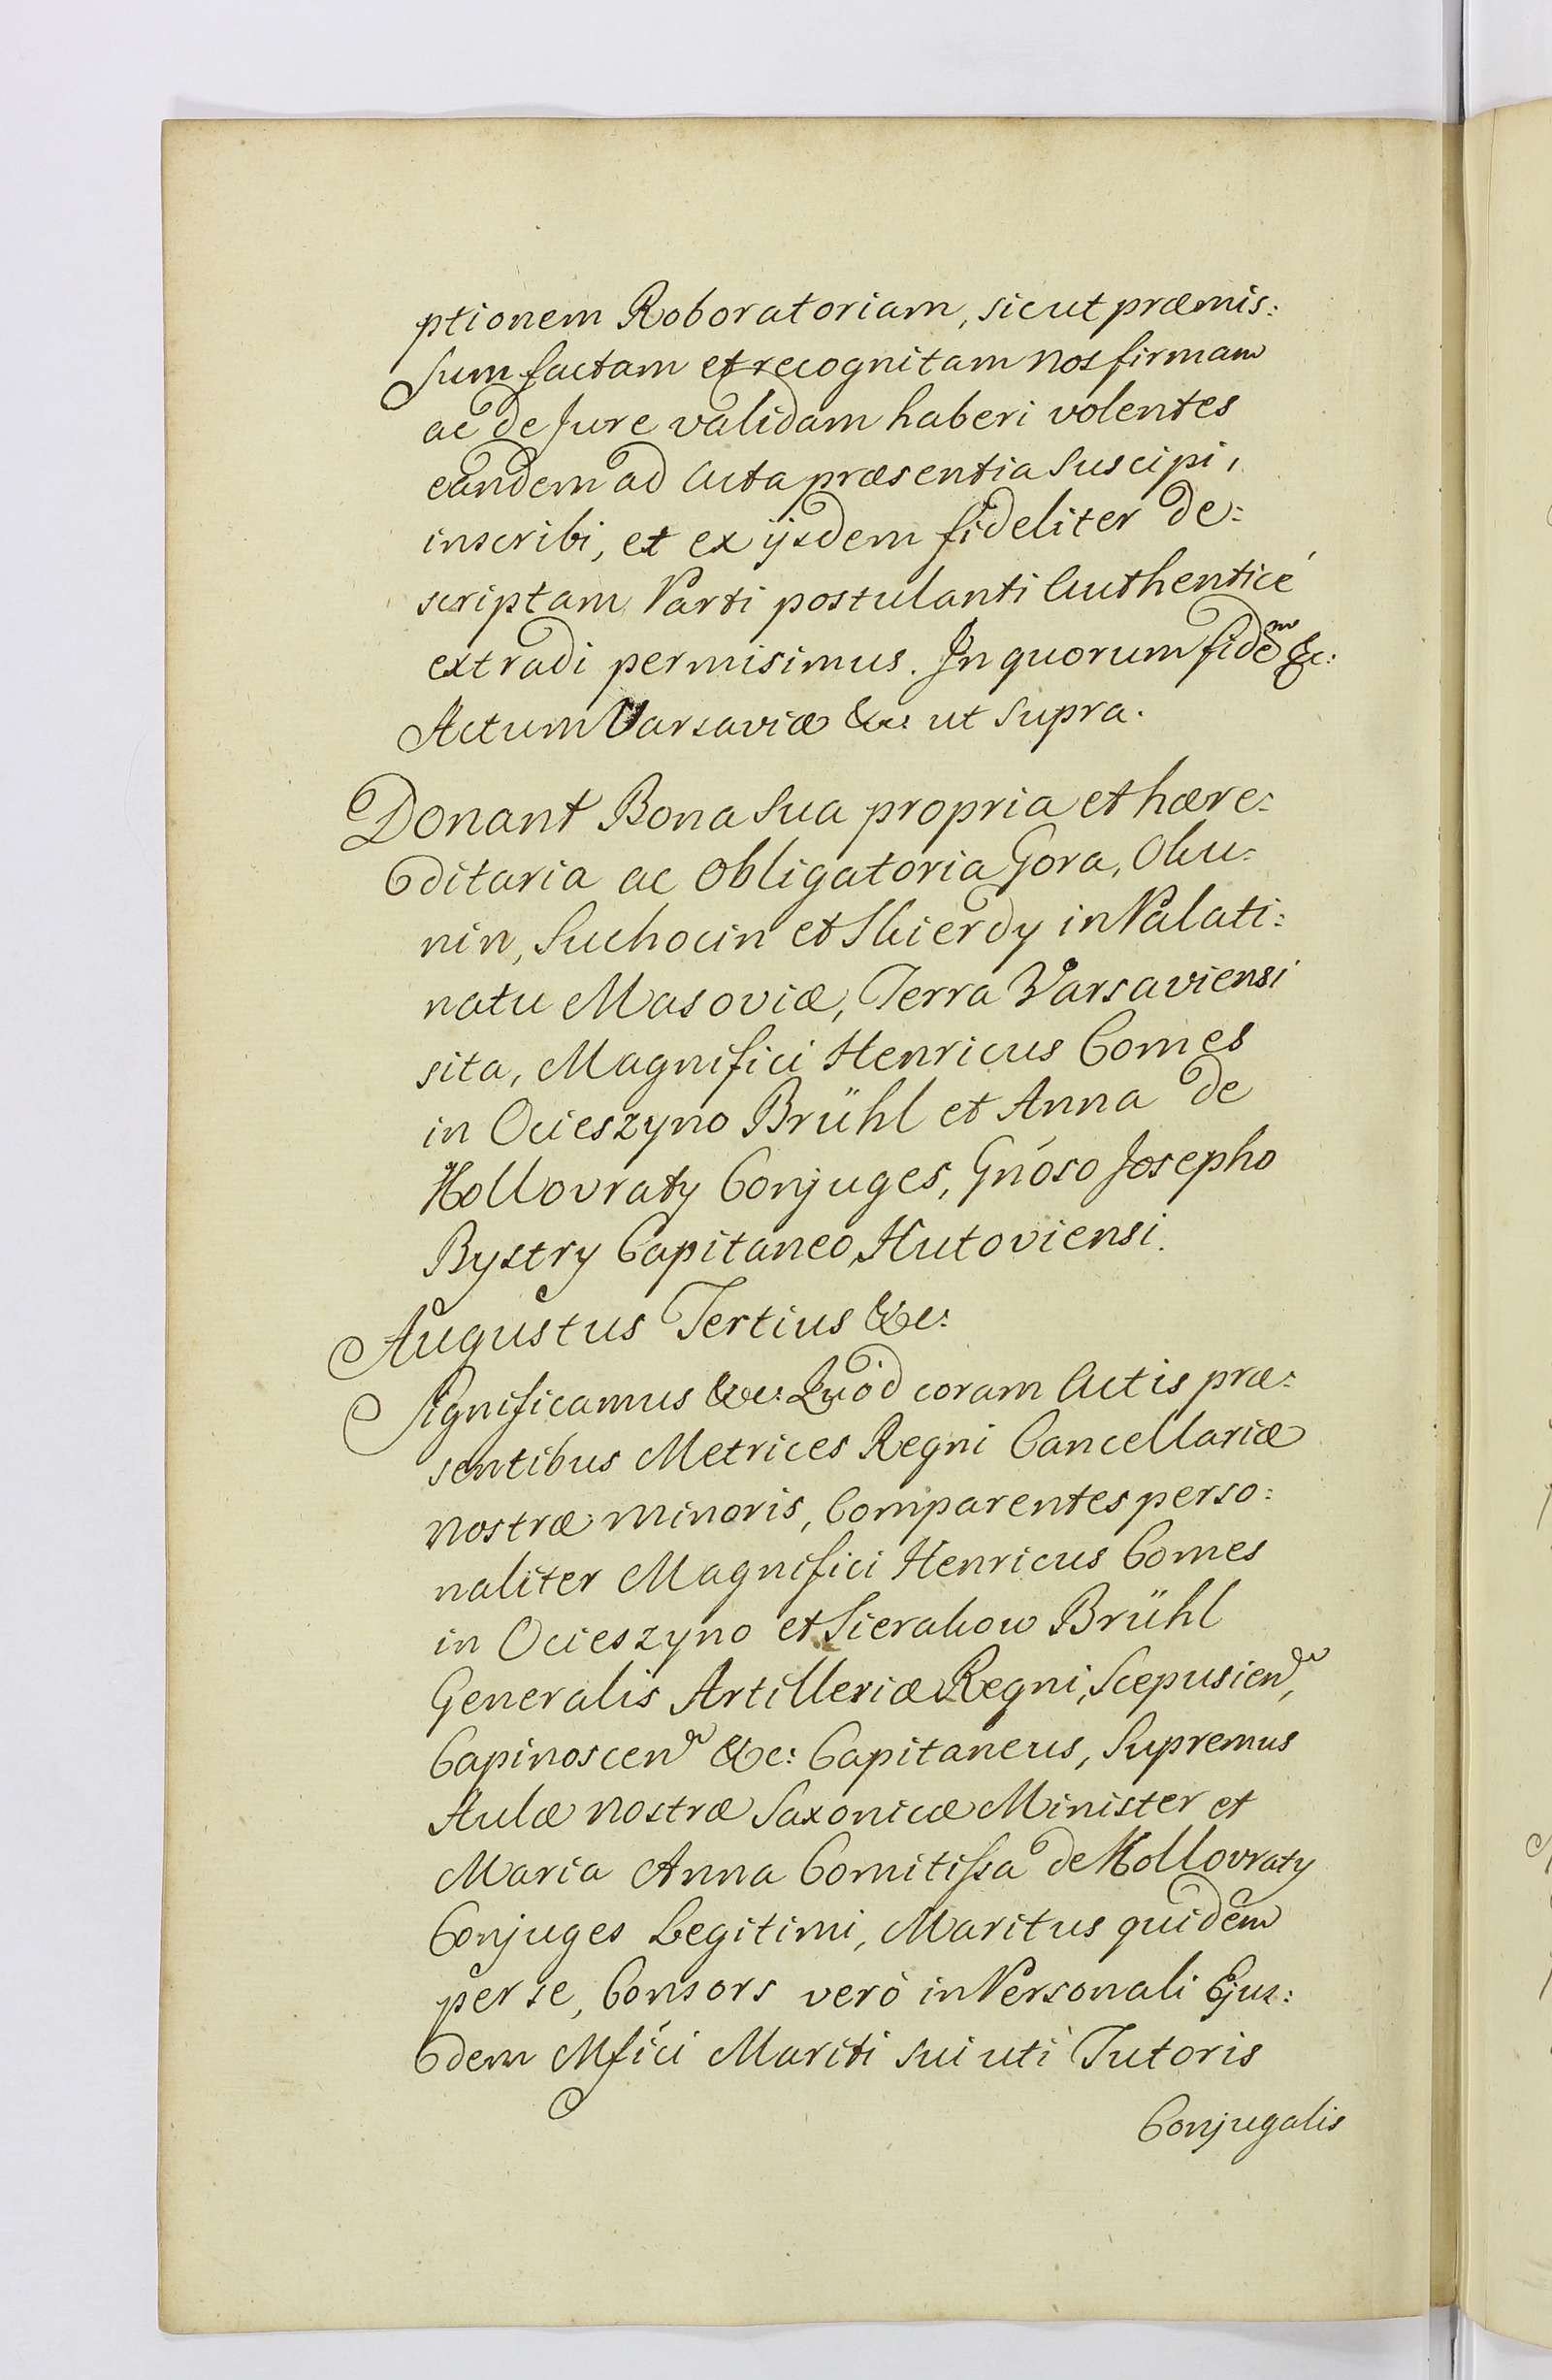 ptionem Roboratoriam, sicut præmis:
sum factam et recognitam nos firmam
ac de Jure validam haberi volentes
eandem ad Acta præsentia Suscipi,
inscribi, et ex ijsdem fideliter de:
scriptam Parti postulanti Authenticé
extradi permisimus. In quorum fidem &c:
Actum Varsaviæ &c: ut Supra.
Donant Bona Sua propria et hære:
ditaria ac Obligatoria Gora, Oku:
nin, Suchocin et Skierdy in Palati:
natu Masoviæ, Terra Varsaviensi
sita, Magnifici Henricus Comes
in Ocieszyno Brühl et Anna de
Kollovraty Conjuges, Gnóso Josepho
Bystry Capitaneo Hutoviensi.
Augustus Tertius &c:
Significamus &c: Quòd coram Actis præ:
sentibus Metrices Regni Cancellariæ
Nostræ Minoris, Comparentes perso:
naliter Magnifici Henricus Comes
in Ocieszyno et Sierakow Brühl
Generalis Artilleriæ Regni, Scepusien,
Capinoscen &c: Capitaneus, Supremus
Aulæ Nostræ Saxonicæ Minister et
Maria Anna Comitissa de Kollovraty
Conjuges Legitimi, Maritus quidem
per se, Consors verò in Personali Ejus:
dem Mfíci Mariti sui uti Tutoris
Conjugalis